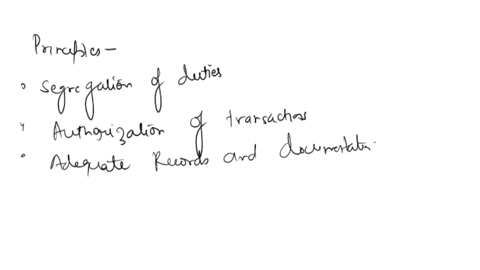 Principles -
• Segregation of duties
• Authorization of transactions
• Adequate Records and documentation